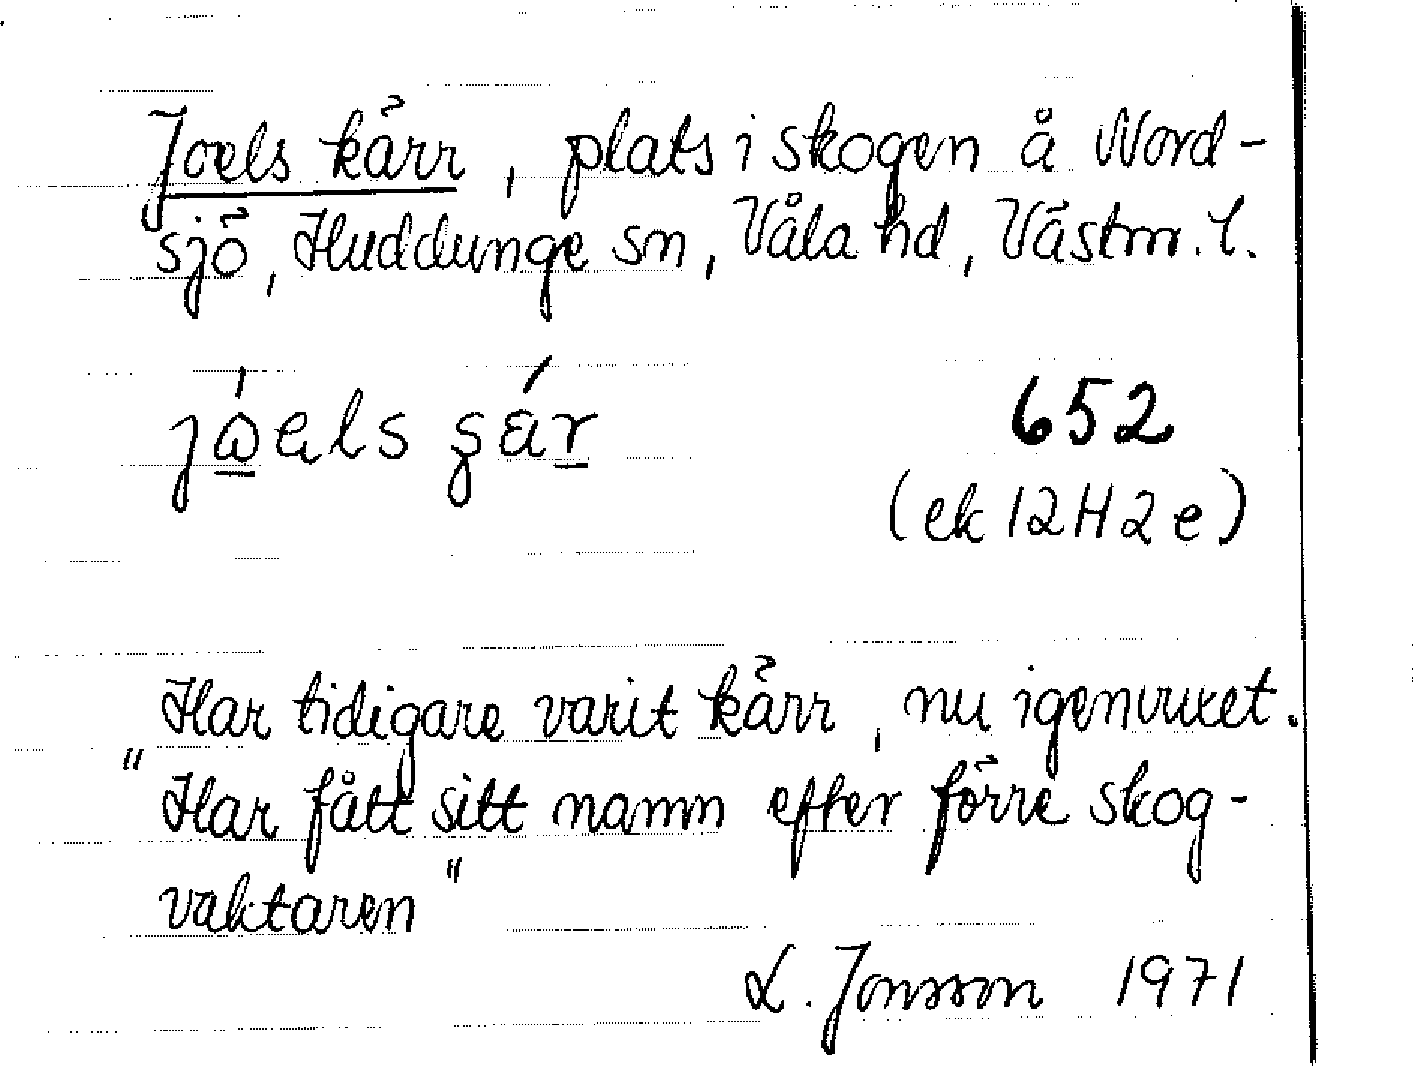 Joels kärr, plats i skogen å Nord-
sjö, Huddunge sn, Våla hd, Västm. l.
652
(ek 12H2e)
Har tidigare varit kärr, nu igenvuxet.
"Har fått sitt namn efter förre skog-
vaktaren"
L. Jonsson 1971